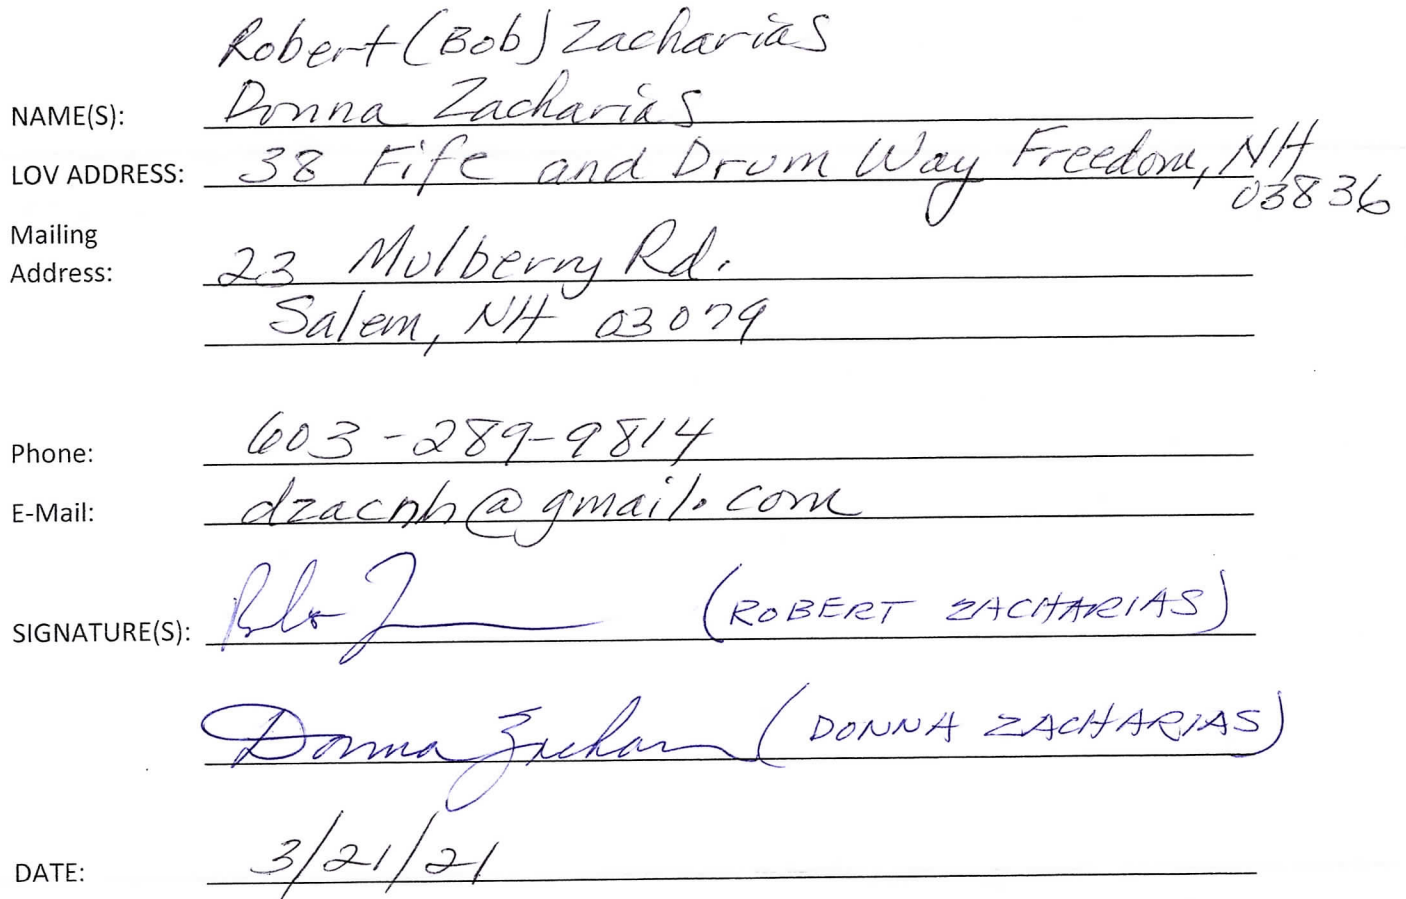 Robert (Bob) Zacharias
NAME(S): Donna Zacharias
LOV ADDRESS: 38 Fife and Drum Way Freedom, NH
03836
Mailing
Address: 23 Mulberry Rd.
Salem, NH 03079
Phone: 603-289-9814
E-Mail: dzacnh@gmail.com
SIGNATURE(S): (ROBERT ZACHARIAS)
Donna Zacharias (DONNA ZACHARIAS)
DATE: 3/21/21